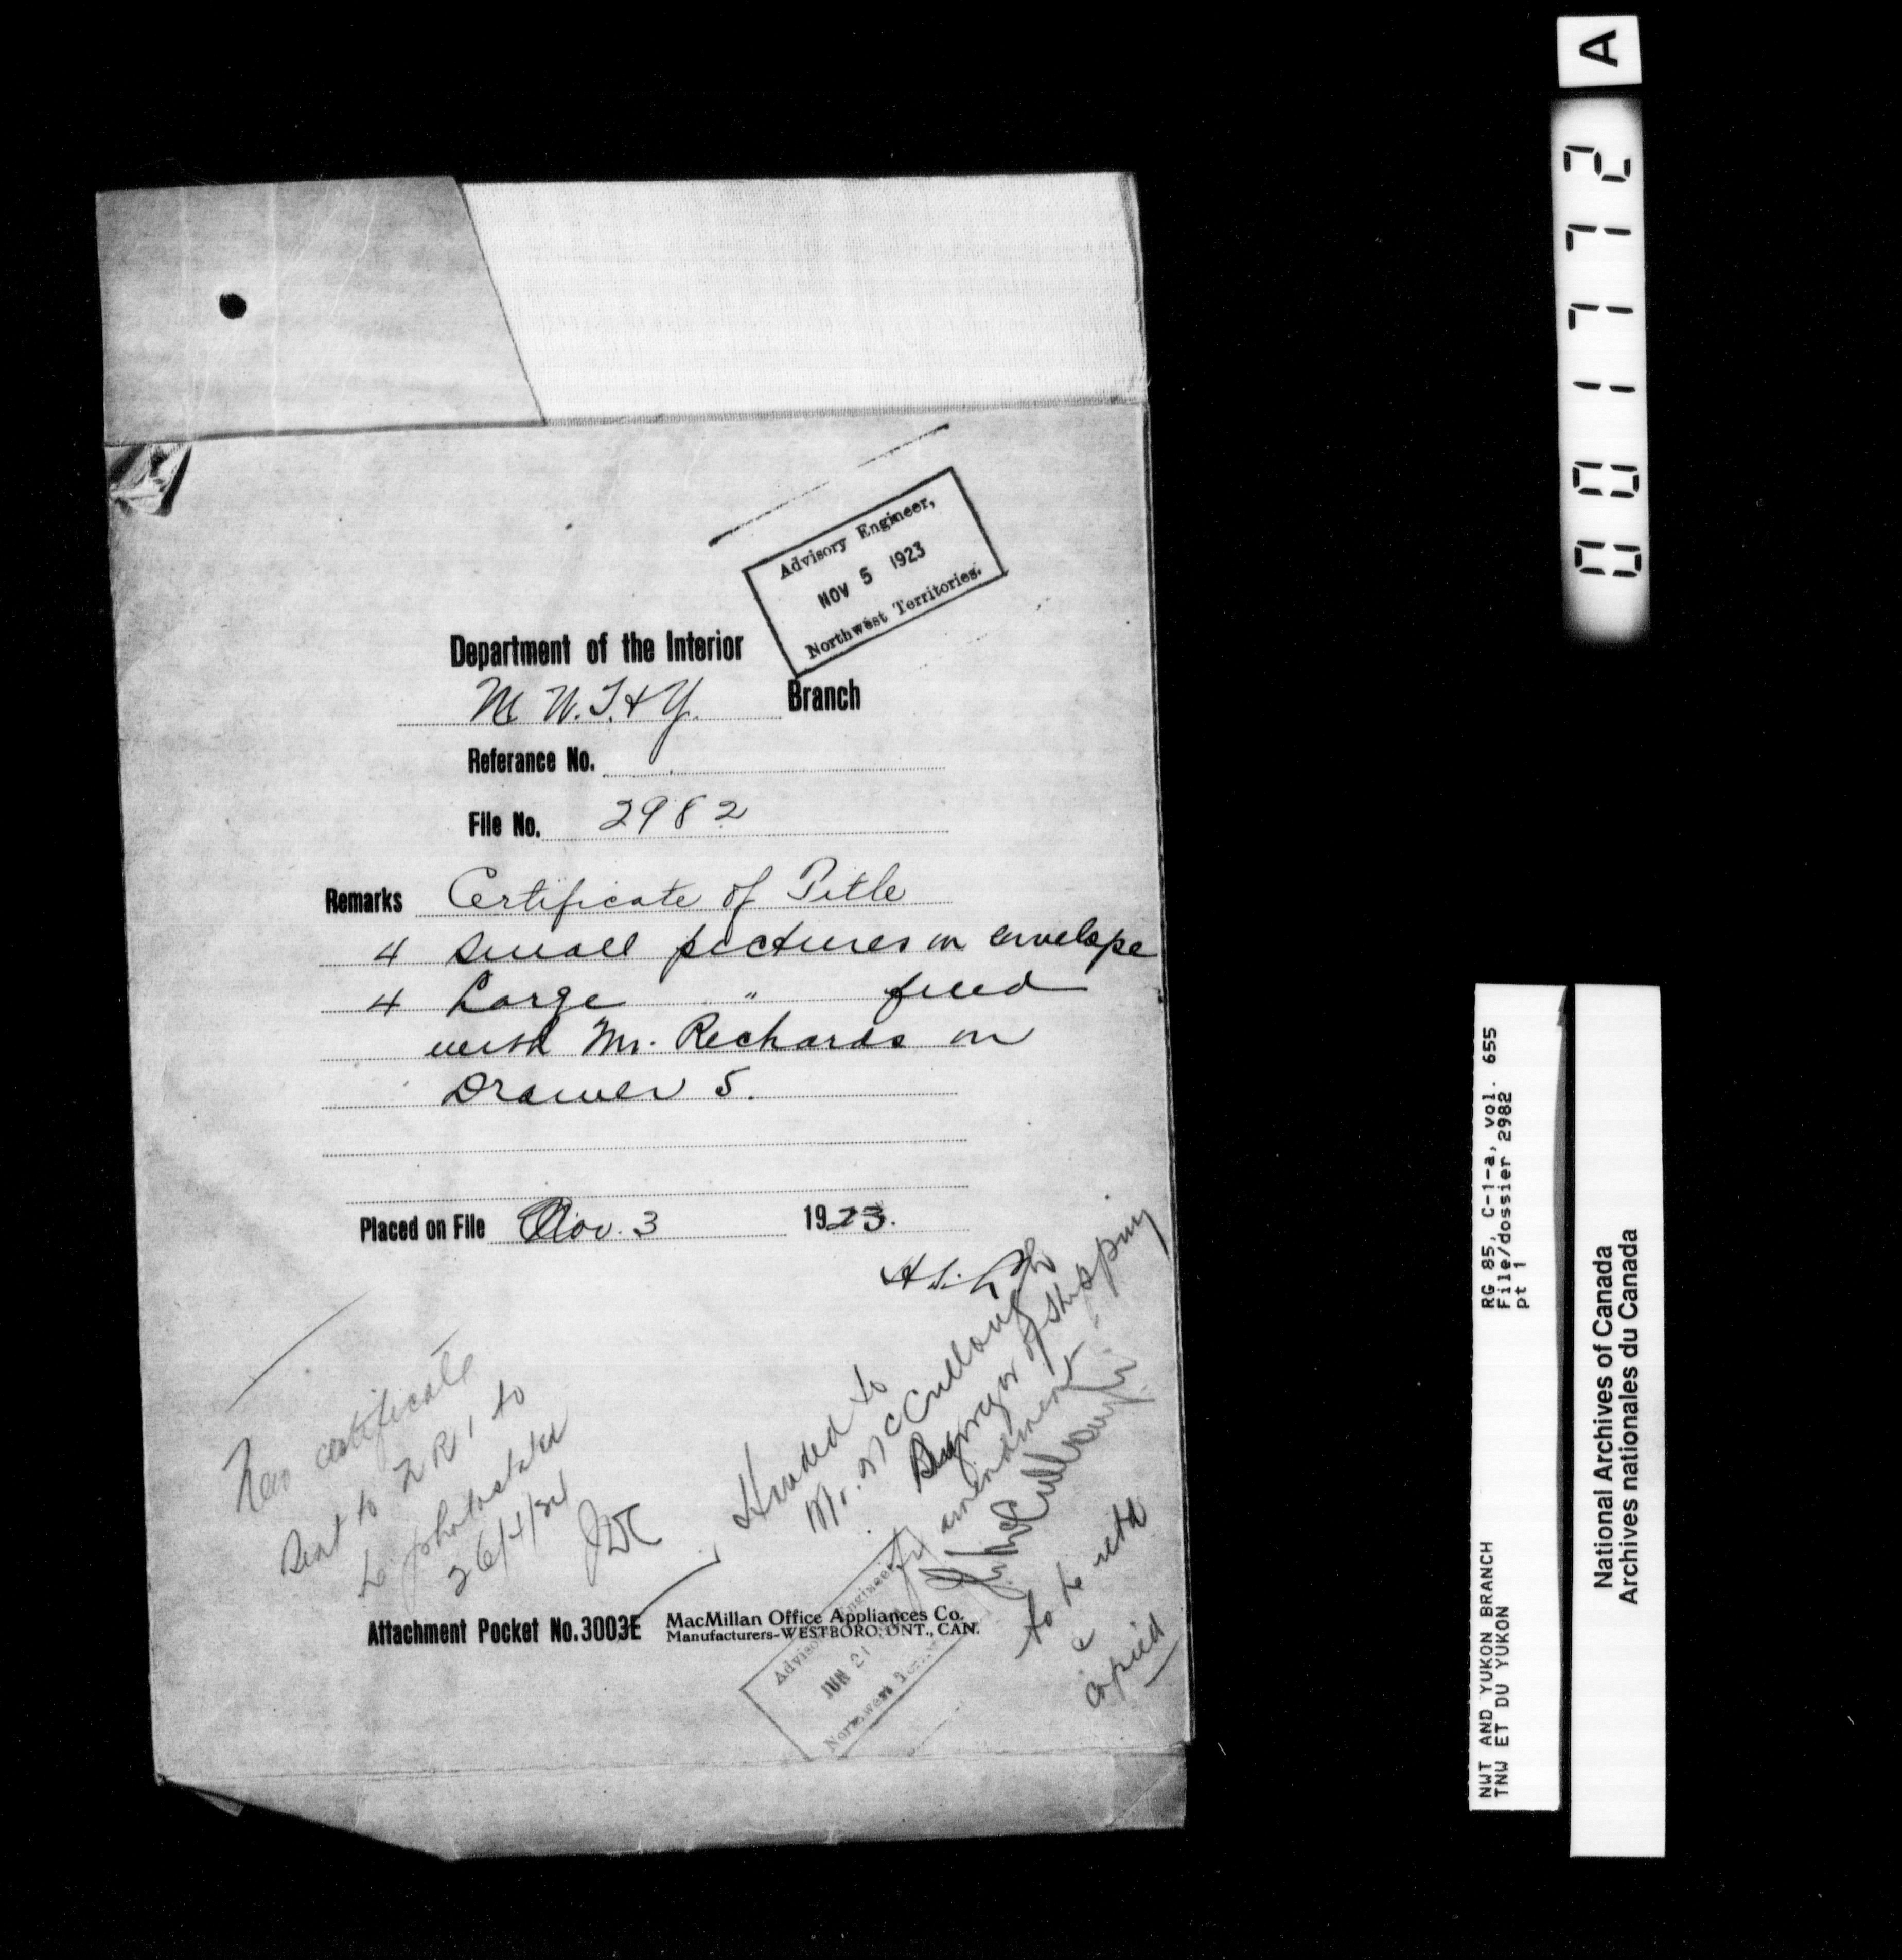 Advisory Engineer,
NOV 5 1923
Northwest Territories.
Department of the Interior
N. W. T. & Y. Branch
Referance No.
File No. 2982
Remarks Certificate of Title
4 small pictures in envelope
4 Large " filed
with Mr. Richards in
Drawer 5.
Placed on File Nov. 3 1923.
New certificate
sent to N R, to
be photostated
26/4/
Handed to
Mr. McCullough
of Shipping
for amendment
J. McCullough
to be retd
&
copied
Attachment Pocket No. 3003E MacMillan Office Appliances Co.
Manufacturers-WESTBORO, ONT., CAN.
Advisory Engineer
JUN 21
Northwest
A
0017772
RG 85, C-1-a, vol. 655
File/dossier 2982
pt 1
NWT AND YUKON BRANCH
TNW ET DU YUKON
National Archives of Canada
Archives nationales du Canada